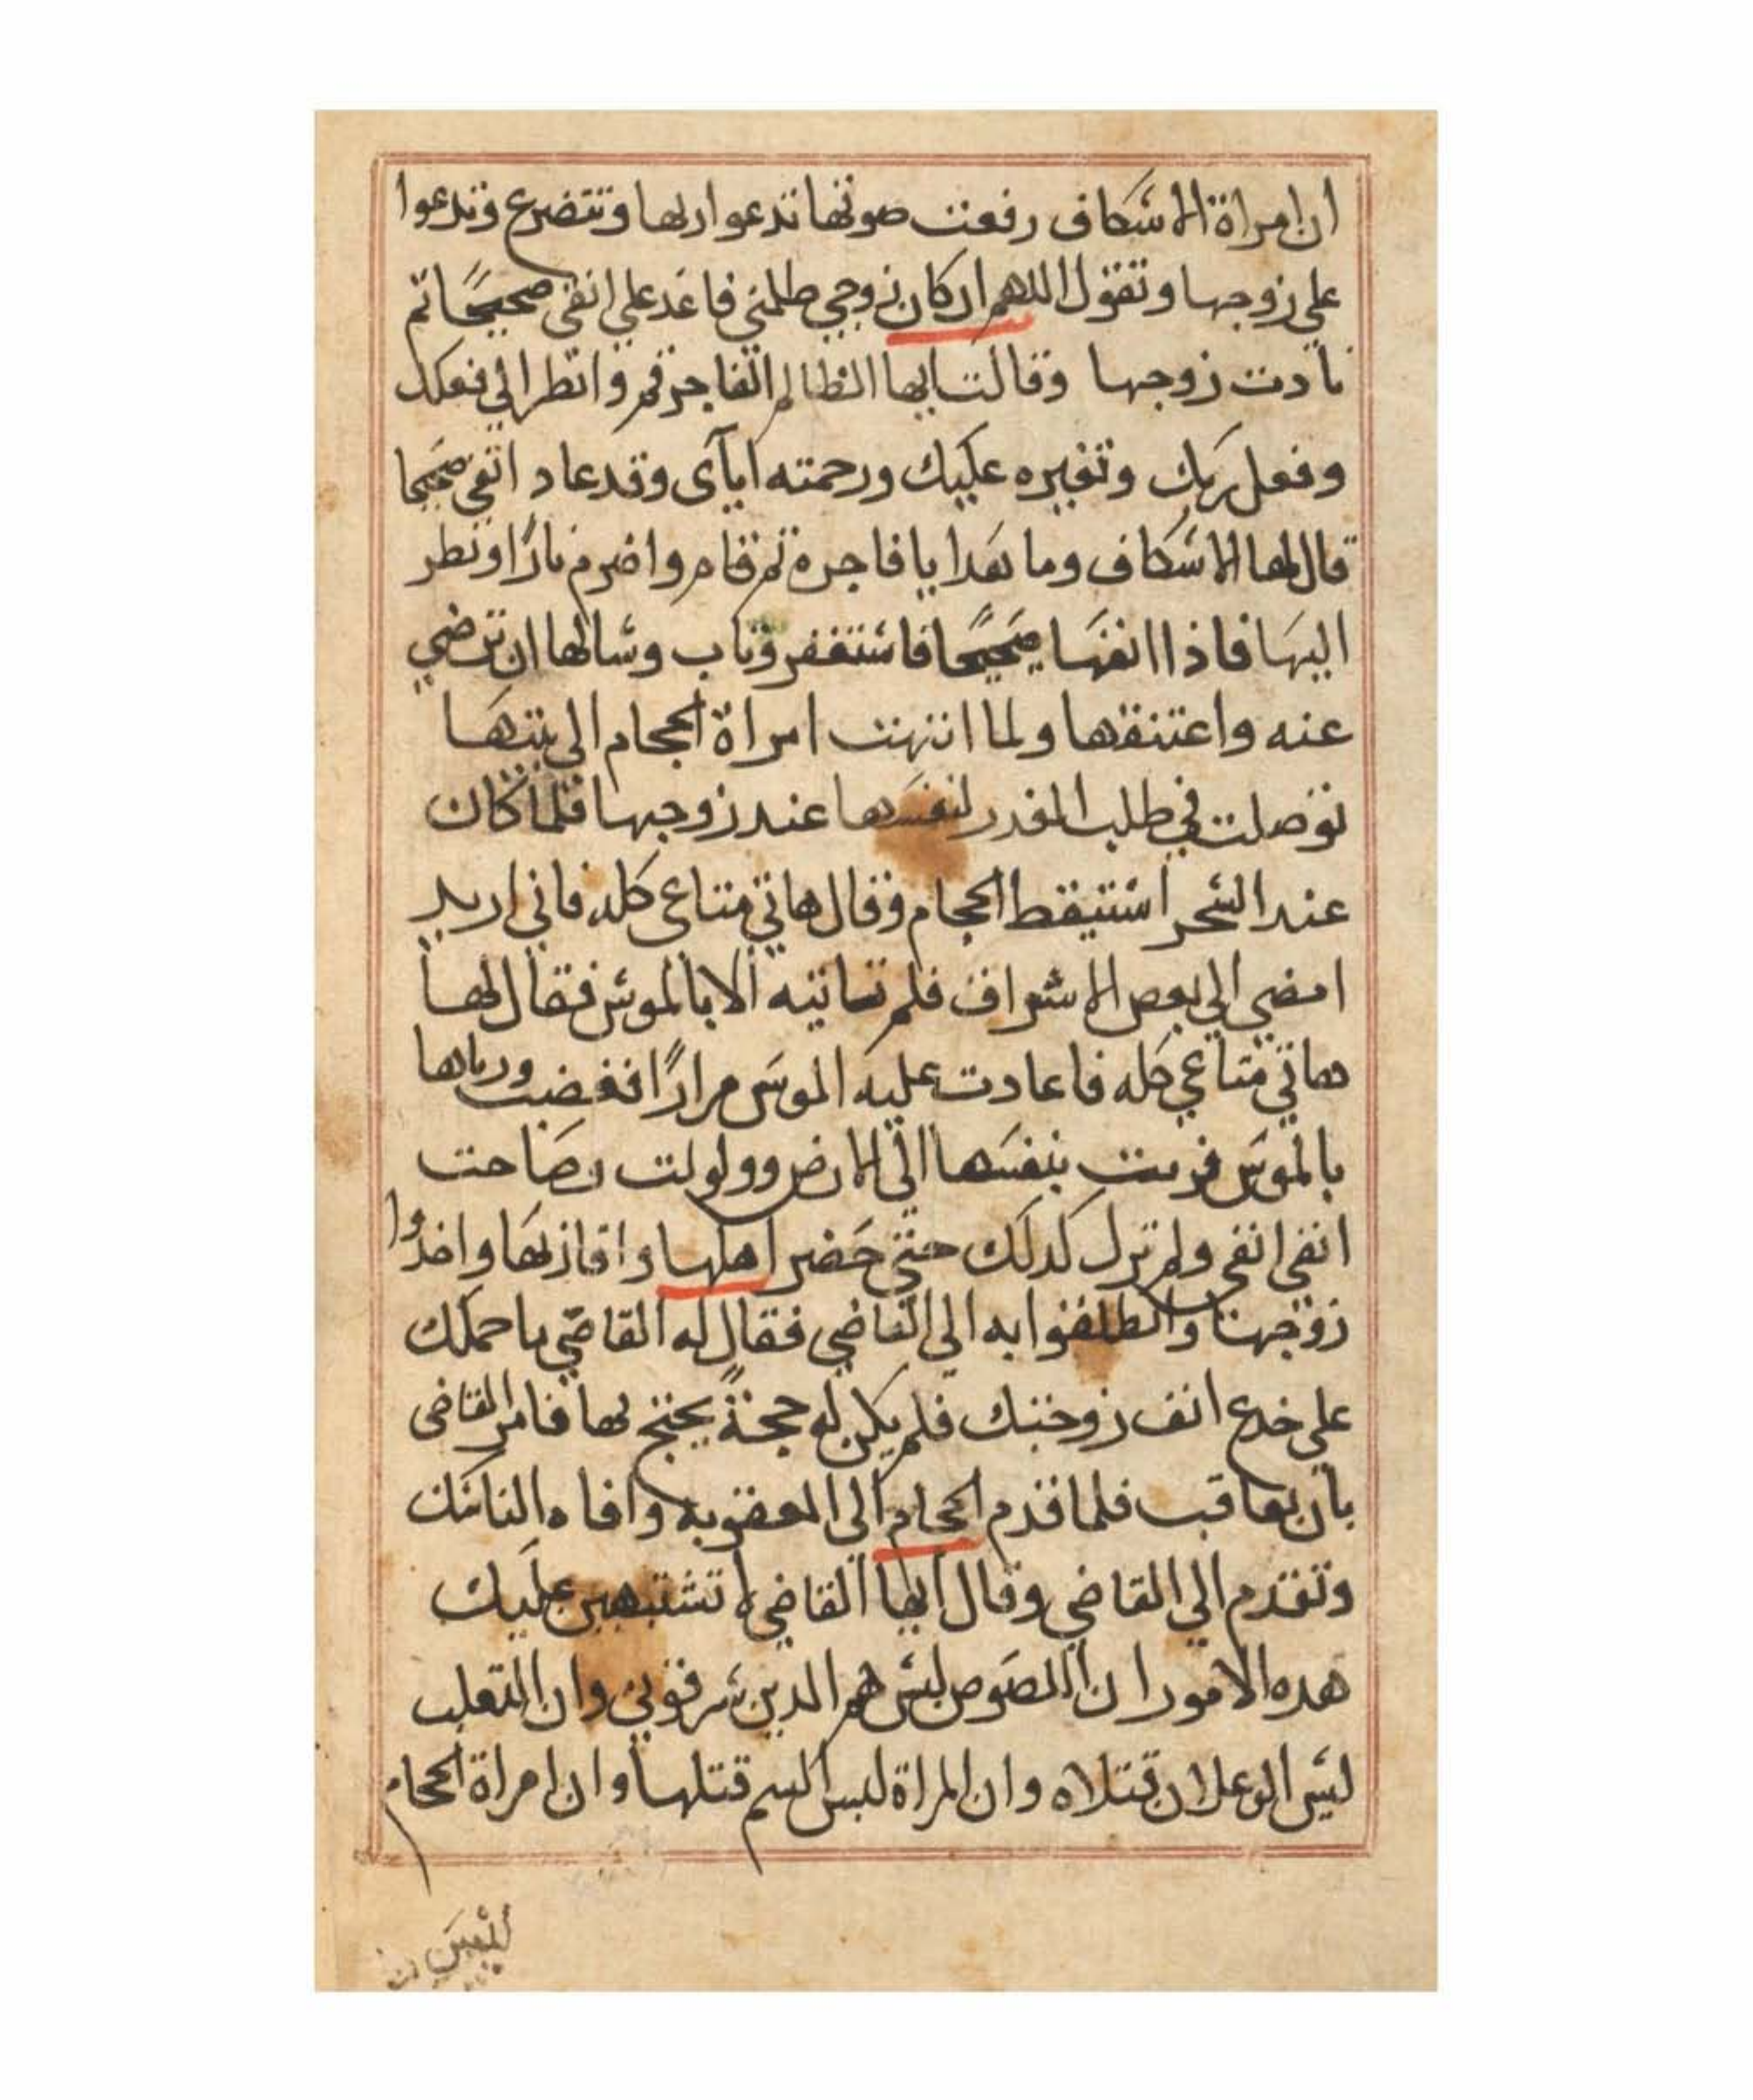 ان امراة الاشكاف رفعت صوتها تدعوا ربها وتتضرع وتدعوا
علي زوجها وتقول اللهم ان كان زوجي ظلمني فاعد علي انفي صحيحًا ثم
نادت زوجها وقالت ايها الظالم الفاجر قم وانظر الي فعلك
وفعل ربك وتغيره عليك ورحمته اياي وقد عاد انفي صحيحا
قال لها الاشكاف وما هدا يا فاجرة ثم قام واضرم نارًا ونظر
اليها فاذا انفها صحيحًا فاستغفر وتاب وسالها ان ترضي
عنه واعتنقها ولما انتهت امراة الحجام الي بيتها
توصلت في طلب العذر لنفسها عند زوجها فلما كان
عند السحر استيقط الحجام وقال هاتي متاعي كله فاني اريد
امضي الي بعض الاشراف فلم تاتيه الا بالموس فقال لها
هاتي متاعي كله فاعادت عليه الموس مرارًا فغضب ورماها
بالموس فرمت بنفسها الي الارض وولولت وصاحت
انفي انفي ولم تزل كدلك حتي حضر اهلها واقاربها واخدوا
زوجها وانطلقوا به الي القاضي فقال له القاضي ما حملك
علي خدع انف زوجتك فلم يكن له حجةً يحتج بها فامر القاضي
بان يعاقب فلما قدم الحجام الي العقوبه وافاه الناسك
وتقدم الي القاضي وقال ايها القاضي لا تشتبهن عليك
هده الامور ان اللصوص ليس هم الدين سرقوني وان الثعلب
ليس الوعلان قتلاه وان المراة ليس السم قتلها وان امراة الحجام
ليس